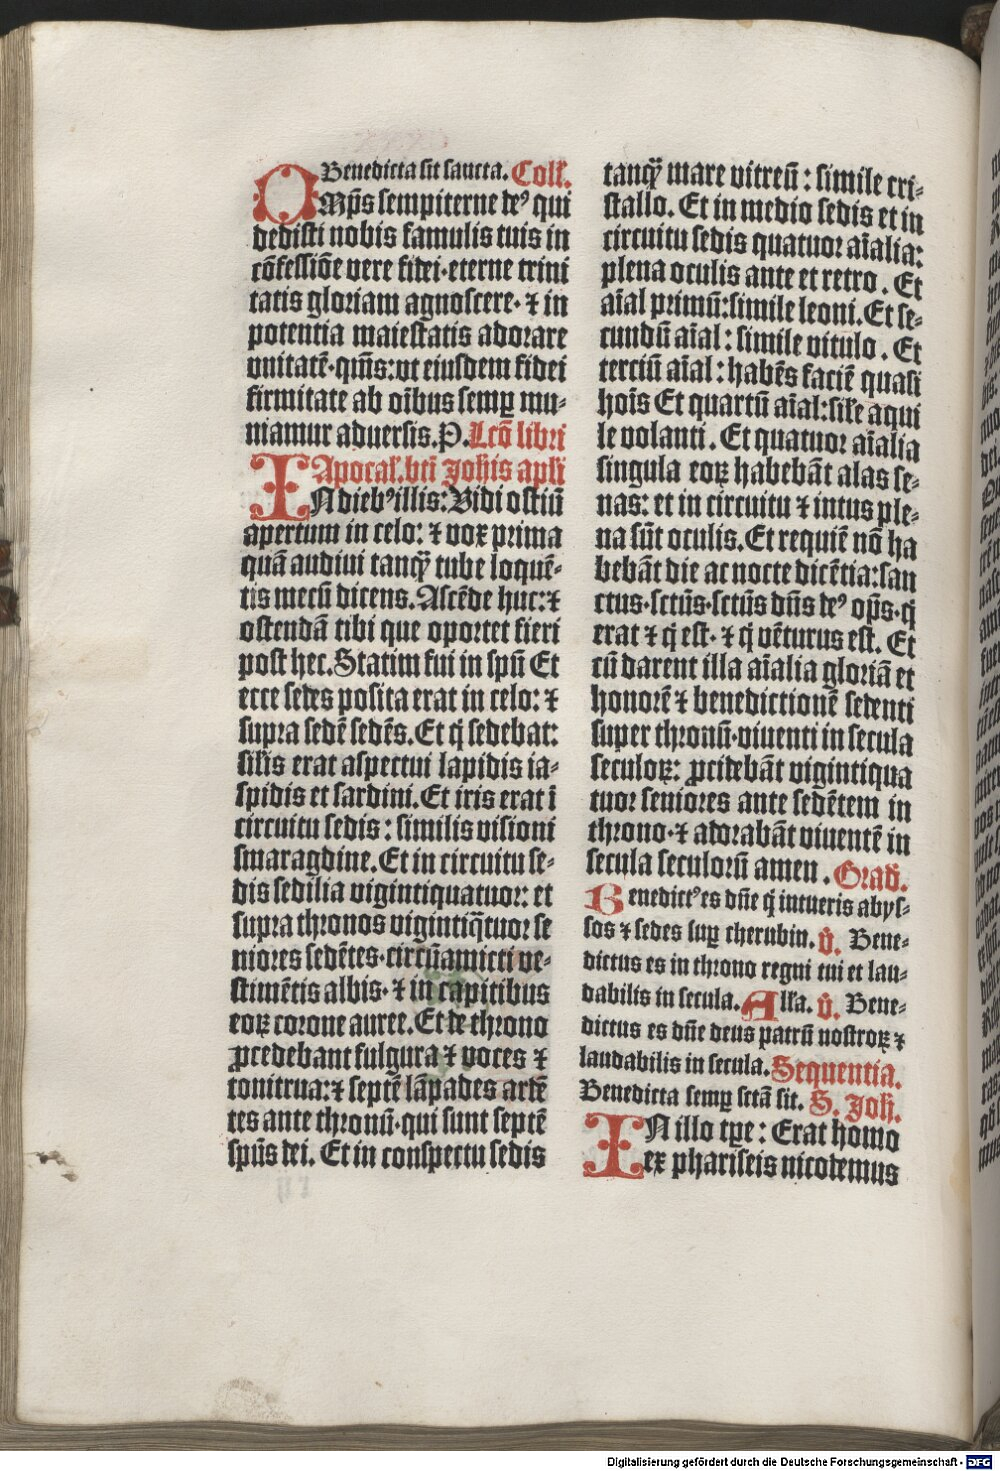 Benedicta sit sancta. Coll̄.
OMp̄s sempiterne deꝰ qui
dedisti nobis famulis tuis in
cōfessiōe vere fidei·eterne trini
tatis gloriam agnoscere· ⁊ in
potentia maiestatis adorare
vnitatē·qm̄s:vt eiusdem fidei
firmitate ab oībus semꝑ mu-
niamur aduersis.P. Lcō libri
Apocal̄.bti Joh̄is apl̄i
INdiebꝰillis: Vidi ostiū
apertum in celo: ⁊ vox prima
quā audiui tanqꝫ tube loquē-
tis mecū dicens. Ascēde huc:⁊
ostendā tibi que oportet fieri
post hec. Statim fui in spū Et
ecce sedes posita erat in celo: ⁊
supra sedē sedēs. Et q̄ sedebat:
sil̄is erat aspectui lapidis ia-
spidis et sardini. Et iris erat ī
circuitu sedis: similis visioni
smaragdine. Et in circuitu se-
dis sedilia vigintiquatuor: et
supra thronos vigintiq̄tuor se
niores sedētes·circūamicti ve-
stimētis albis· ⁊ in capitibus
eoꝝ corone auree. Et de throno
ꝓcedebant fulgura ⁊ voces ⁊
tonitrua: ⁊ septē lāpades ardē
tes ante thronū·qui sunt septē
spūs dei. Et in conspectu sedis
tanqꝫ mare vitreū: simile cri-
stallo. Et in medio sedis et in
circuitu sedis quatuor aīalia:
plena oculis ante et retro. Et
aīal primū:simile leoni. Et se-
cundū aīal: simile vitulo. Et
terciū aīal: habēs faciē quasi
hoīs Et quartū aīal:sil̄e aqui
le volanti. Et quatuor aīalia
singula eoꝝ habebāt alas se-
nas: et in circuitu ⁊ intus ple-
na sūt oculis. Et requiē nō ha
bebāt die ac nocte dicētia:san
ctus·sctūs·sctūs dn̄s deꝰ op̄s·q̄
erat ⁊ q̄ est· ⁊ q̄ vēturus est. Et
cū darent illa aīalia gloriā et
honorē ⁊ benedictionē sedenti
super thronū·viuenti in secula
seculoꝝ: ꝓcidebāt vigintiqua
tuor seniores ante sedētem in
throno·⁊ adorabāt viuentē in
secula seculorū amen. Grad̄.
Benedictꝰes dn̄e q̄ intueris abys-
sos ⁊ sedes suꝑ cherubin. v̄. Bene-
dictus es in throno regni tui et lau-
dabilis in secula. All̄a. v̄. Bene-
dictus es dn̄e deus patrū nostroꝝ ⁊
laudabilis in secula. Sequentia.
Benedicta semꝑ sctā sit. S. Joh̄.
IN illo tꝑe: Erat homo
ex phariseis nicodemus
Digitalisierung gefördert durch die Deutsche Forschungsgemeinschaft - DFG